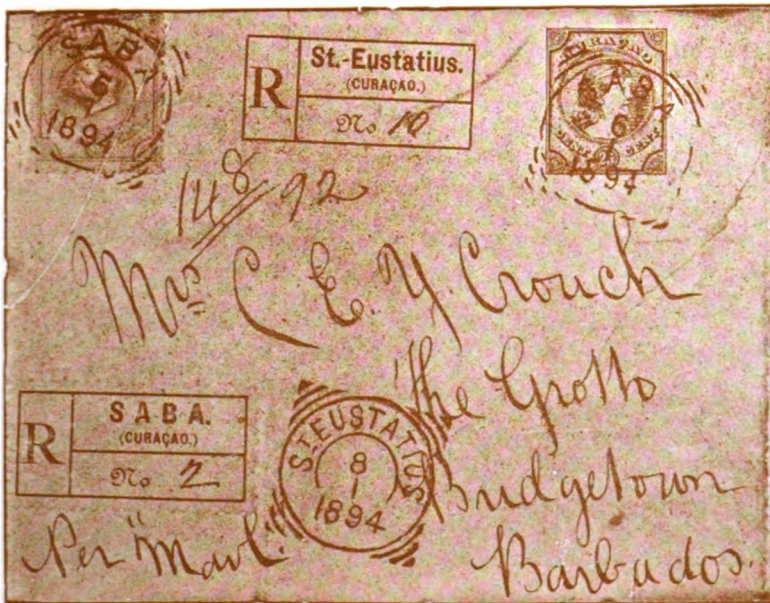 SABA
1894
R
St.-Eustatius.
(CURAÇAO.)
No 10
SABA
6
1894
148/92
Mrs C. E. Y. Crouch
The Grotto
Bridgetown
Barbados.
R
SABA.
(CURAÇAO.)
No 2
ST EUSTATIUS
8
1
1894
Per "Mail"